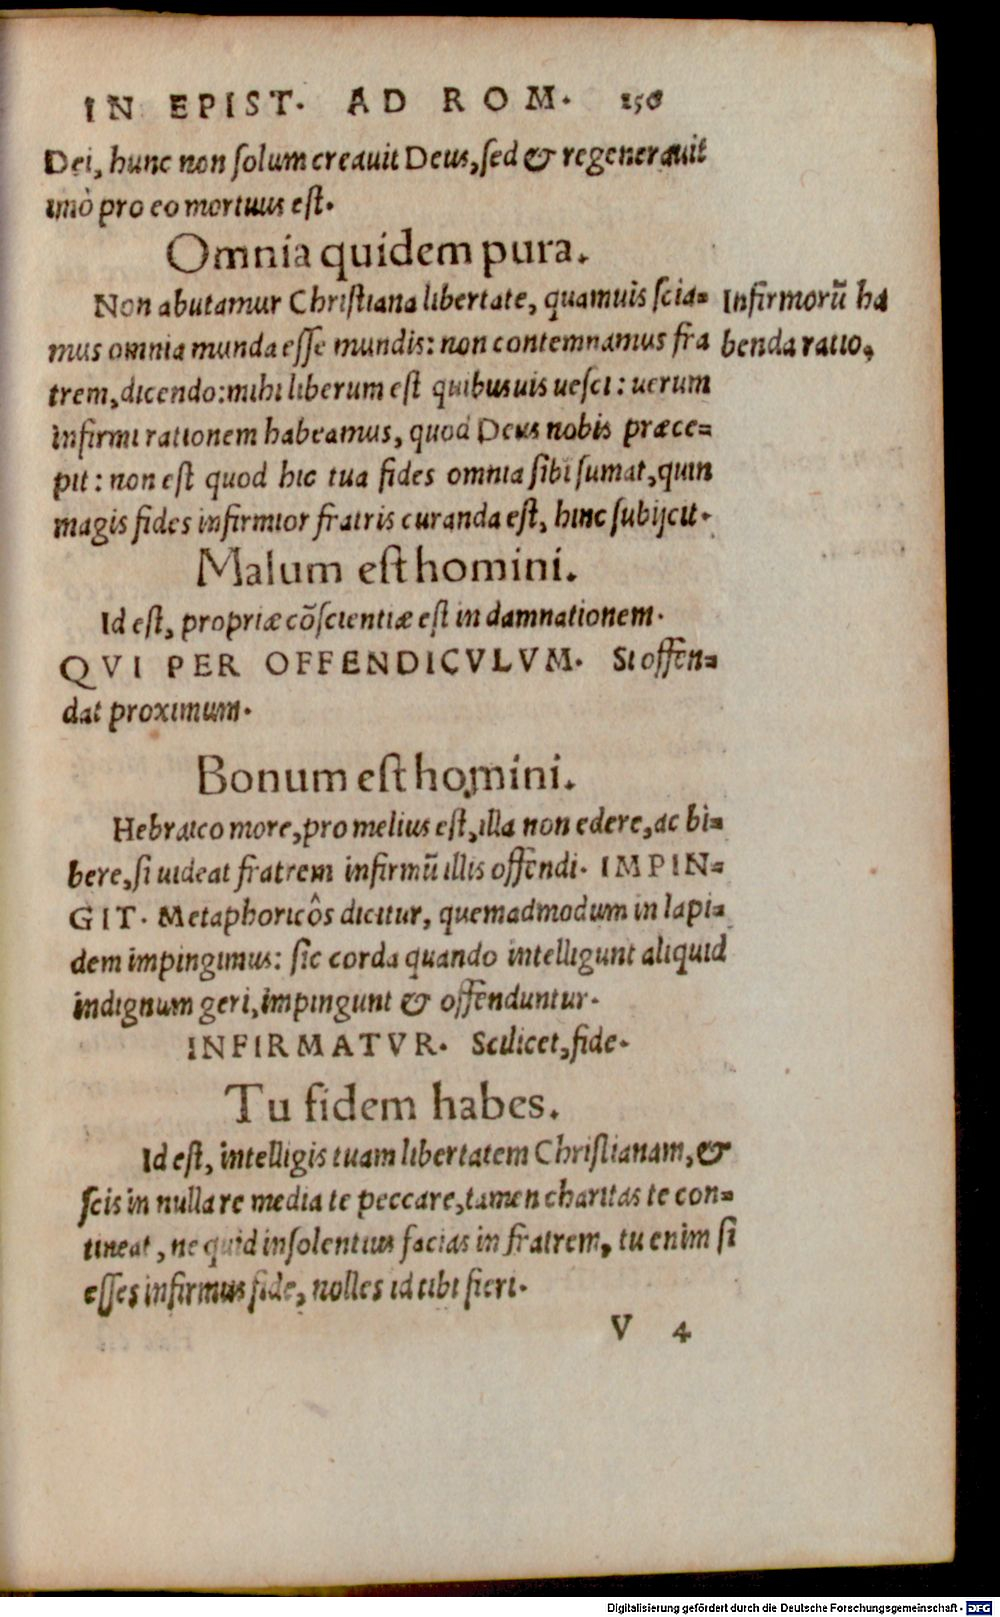 IN EPIST. AD ROM. 156
Dei, hunc non ſolum creauit Deus, ſed & regenerauit
imò pro eo mortuus eſt.
Omnia quidem pura.
Non abutamur Chriſtiana libertate, quamuis ſcia=
mus omnia munda eſſe mundis: non contemnamus fra
trem, dicendo: mihi liberum eſt quibusuis ueſci: uerum
infirmi rationem habeamus, quod Deus nobis præce=
pit: non eſt quod hic tua fides omnia ſibi ſumat, quin
magis fides infirmior fratris curanda eſt, hinc ſubijcit.
Infirmorũ ha
benda ratio.
Malum eſt homini.
Id eſt, propriæ cõſcientiæ eſt in damnationem.
QVI PER OFFENDICVLVM. Si offen=
dat proximum.
Bonum eſt homini.
Hebraico more, pro melius eſt, illa non edere, ac bi=
bere, ſi uideat fratrem infirmũ illis offendi. IMPIN=
GIT. Metaphoricôs dicitur, quemadmodum in lapi=
dem impingimus: ſic corda quando intelligunt aliquid
indignum geri, impingunt & offenduntur.
INFIRMATVR. Scilicet, fide.
Tu fidem habes.
Id eſt, intelligis tuam libertatem Chriſtianam, &
ſcis in nulla re media te peccare, tamen charitas te con=
tineat, ne quid inſolentius facias in fratrem, tu enim ſi
eſſes infirmus fide, nolles id tibi fieri.
V 4
Digitalisierung gefördert durch die Deutsche Forschungsgemeinschaft - DFG